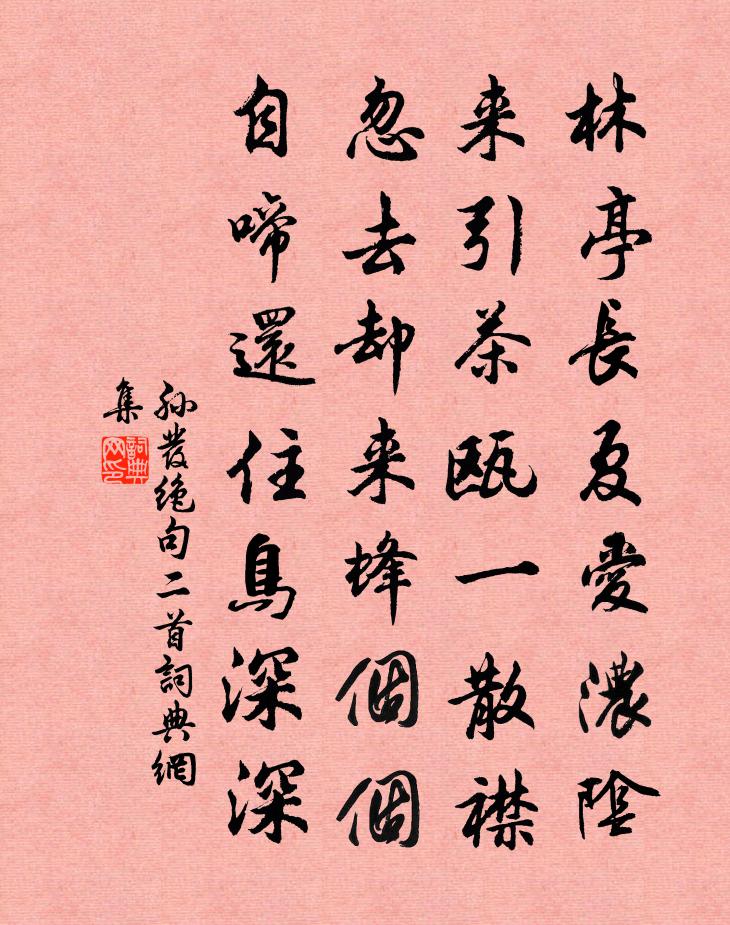 林亭長夏愛濃陰
来引茶甌一散襟
忽去却来蜂個個
自啼還住鳥深深
孙發绝句二首詞典網
集
詞典
网印